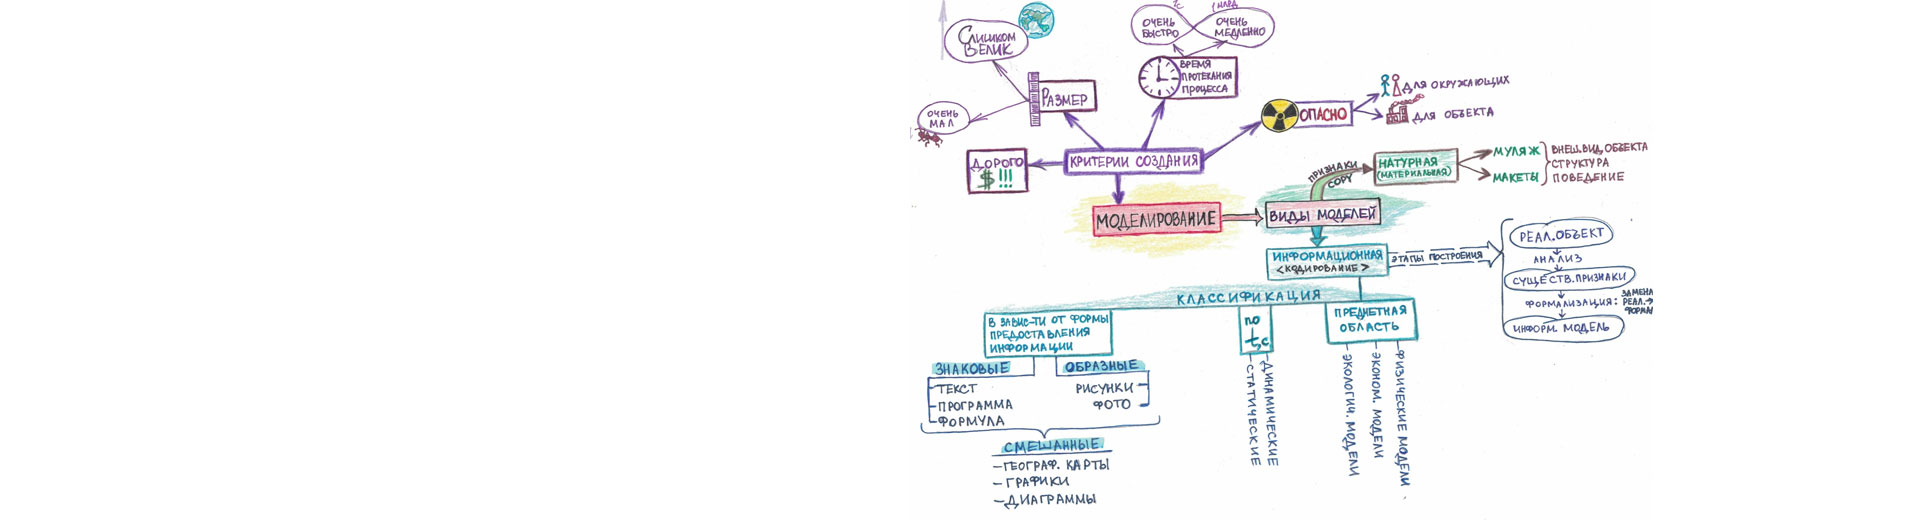 СЛИШКОМ
ВЕЛИК
ОЧЕНЬ
МАЛ
РАЗМЕР
ОЧЕНЬ
БЫСТРО
ОЧЕНЬ
МЕДЛЕННО
ВРЕМЯ
ПРОТЕКАНИЯ
ПРОЦЕССА
ОПАСНО
ДЛЯ ОКРУЖАЮЩИХ
ДЛЯ ОБЪЕКТА
ДОРОГО
$!!!
КРИТЕРИИ СОЗДАНИЯ
МОДЕЛИРОВАНИЕ
ВИДЫ МОДЕЛЕЙ
ПРИЗНАКИ
COPY
НАТУРНАЯ
(МАТЕРИАЛЬНАЯ)
МУЛЯЖ
МАКЕТЫ
ВНЕШ.ВИД ОБЪЕКТА
СТРУКТУРА
ПОВЕДЕНИЕ
ИНФОРМАЦИОННАЯ
<КОДИРОВАНИЕ>
ЭТАПЫ ПОСТРОЕНИЯ
РЕАЛ.ОБЪЕКТ
АНАЛИЗ
СУЩЕСТВ.ПРИЗНАКИ
ФОРМАЛИЗАЦИЯ:
ЗАМЕНА
РЕАЛ.→
ФОРМА!
ИНФОРМ. МОДЕЛЬ
КЛАССИФИКАЦИЯ
В ЗАВИС-ТИ ОТ ФОРМЫ
ПРЕДОСТАВЛЕНИЯ
ИНФОРМАЦИИ
ЗНАКОВЫЕ
-ТЕКСТ
-ПРОГРАММА
-ФОРМУЛА
ОБРАЗНЫЕ
РИСУНКИ
ФОТО
СМЕШАННЫЕ
-ГЕОГРАФ. КАРТЫ
-ГРАФИКИ
-ДИАГРАММЫ
ПО
t,c
СТАТИЧЕСКИЕ
ДИНАМИЧЕСКИЕ
ПРЕДМЕТНАЯ
ОБЛАСТЬ
ЭКОЛОГИЧ. МОДЕЛИ
ЭКОНОМ. МОДЕЛИ
ФИЗИЧЕСКИЕ МОДЕЛИ